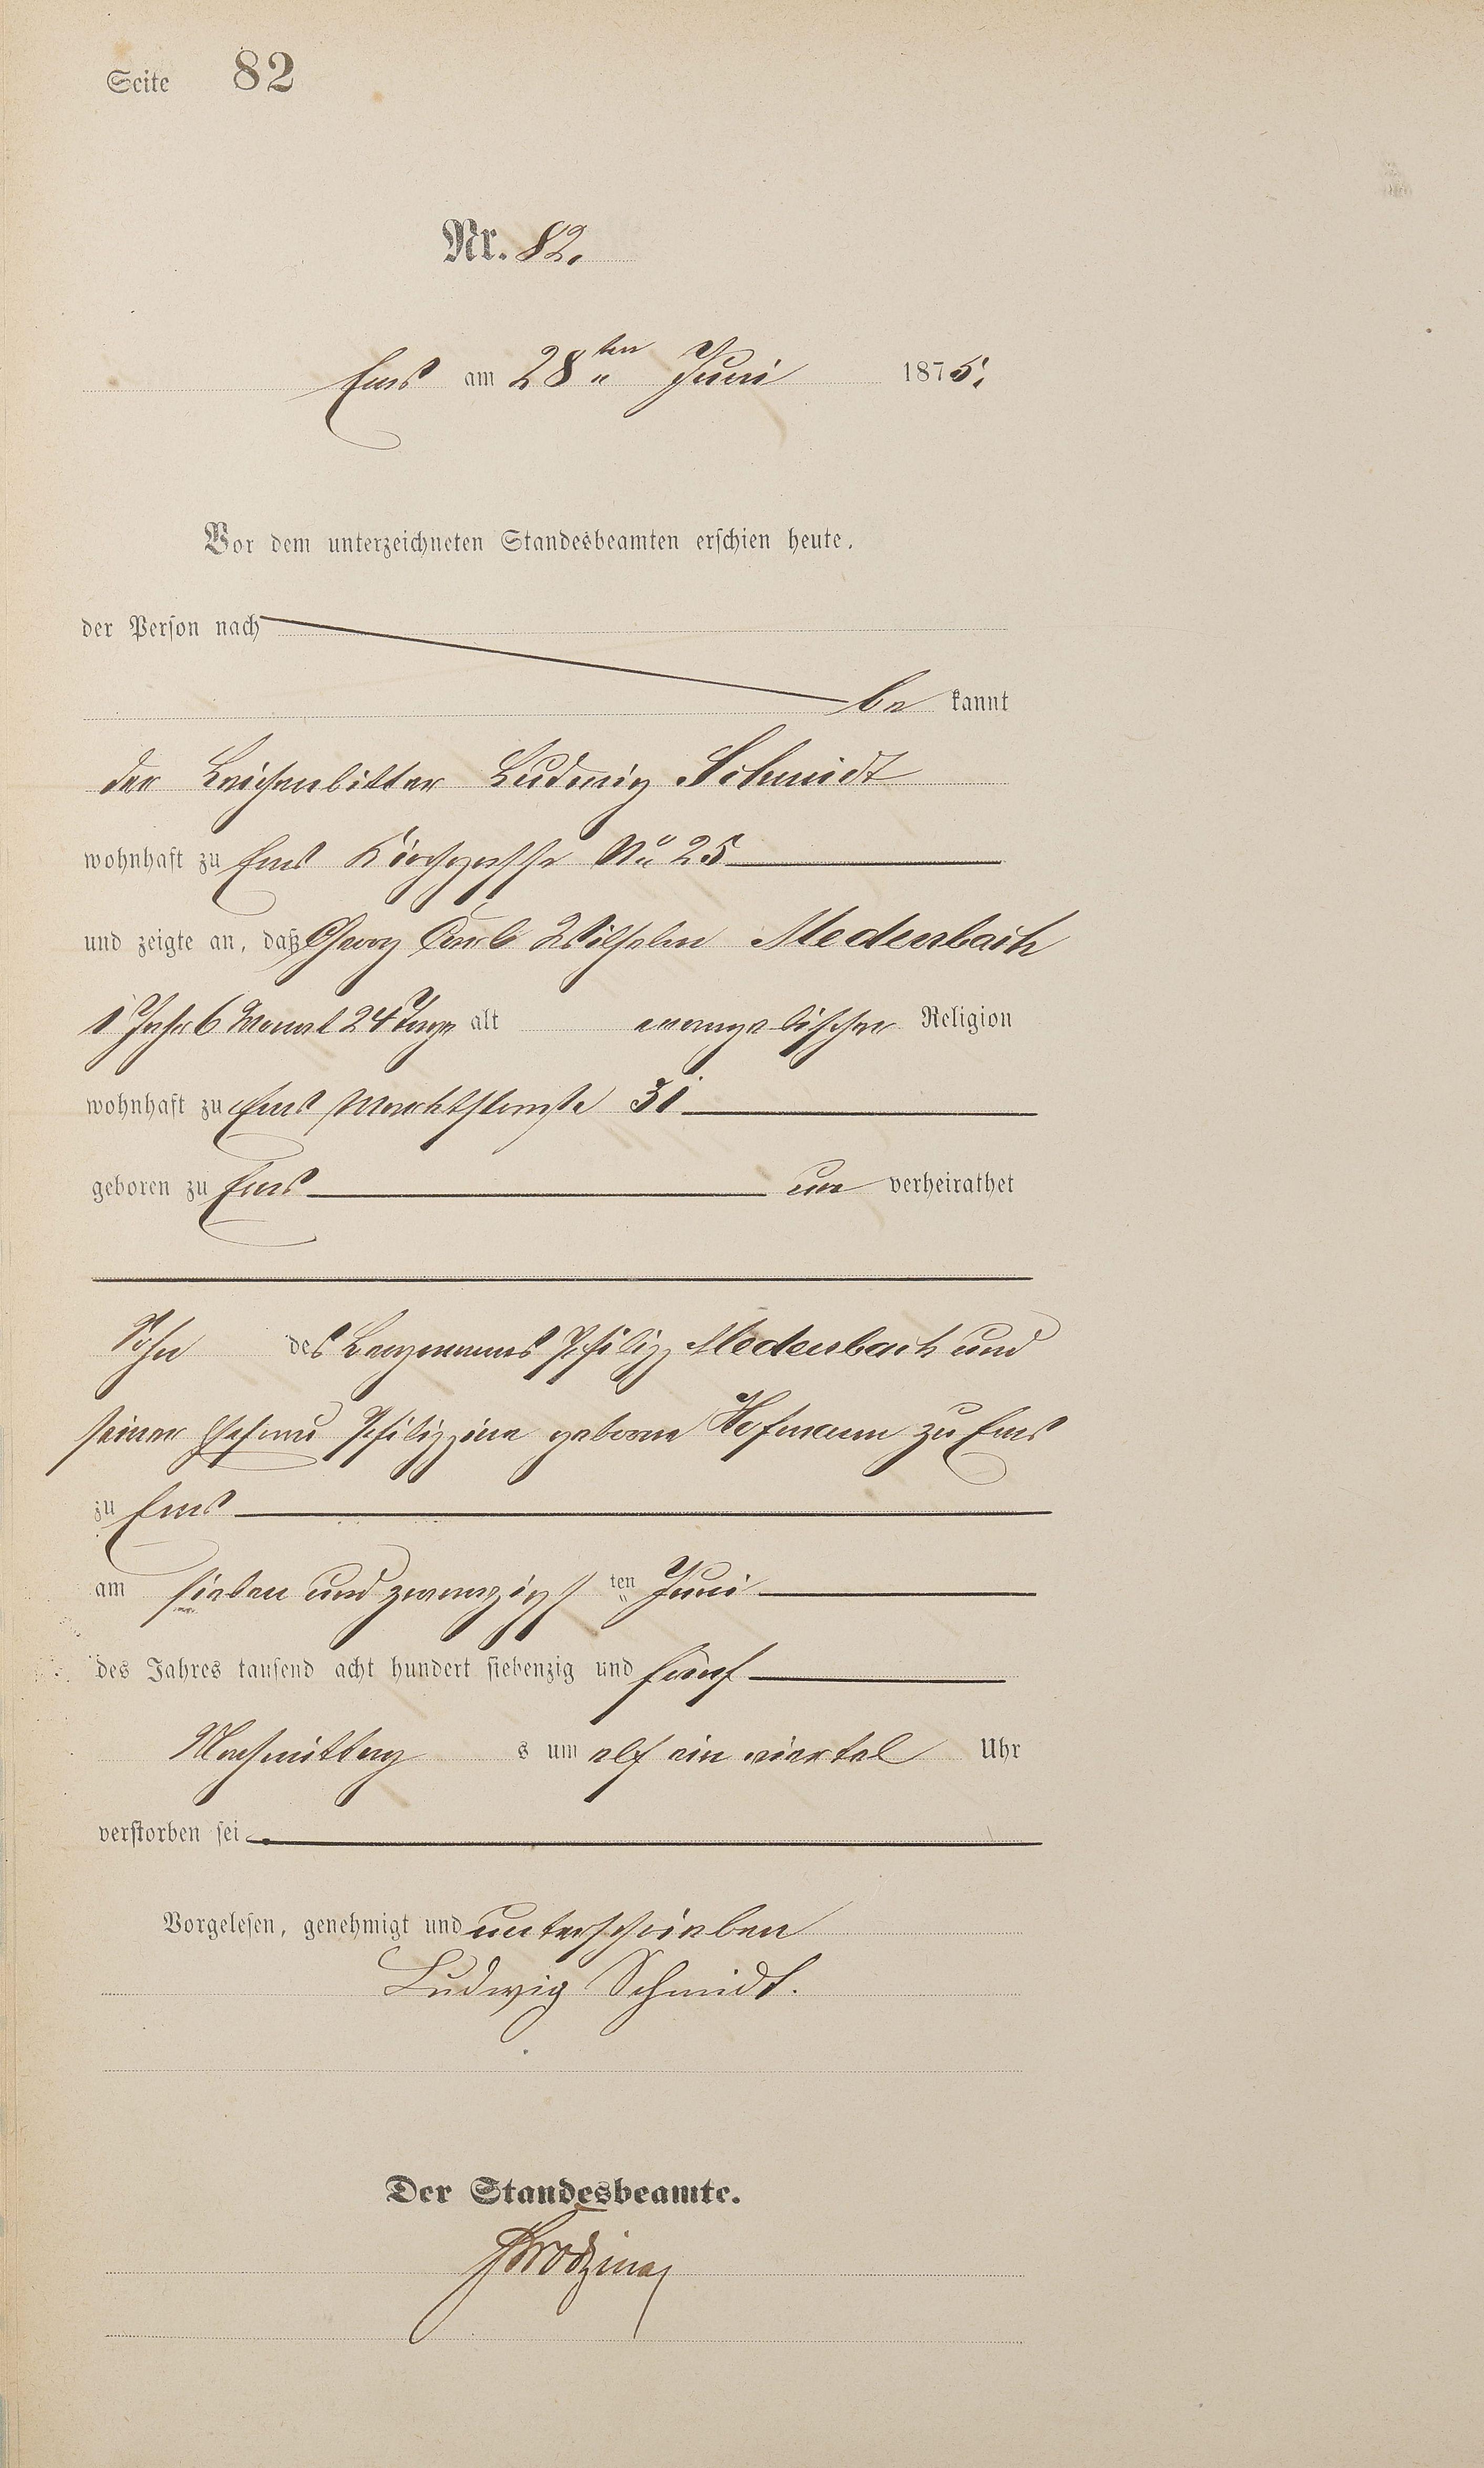 Seite 82
Nr. 82.
Ems am 28ten Juni 1875.
Vor dem unterzeichneten Standesbeamten erschien heute,
der Person nach
be kannt
der Leichenbitter Ludwig Schmidt
wohnhaft zu Ems Kirchgasse No 25
und zeigte an, daß Georg Carl Wilhelm Medenbach
1 Jahr 6 Monat 24 Tage alt evangelischer Religion
wohnhaft zu Ems Marktstraße 31
geboren zu Ems un verheirathet
Sohn des Bergmanns Philipp Medenbach und
seiner Ehefrau Philippine geborne Hofmann zu Ems
zu Ems
am sieben und zwanzigs ten Juni
des Jahres tausend acht hundert siebenzig und fünf
Nachmittag s um elf ein viertel Uhr
verstorben sei.
Vorgelesen, genehmigt und unterschrieben
Ludwig Schmidt.
Der Standesbeamte.